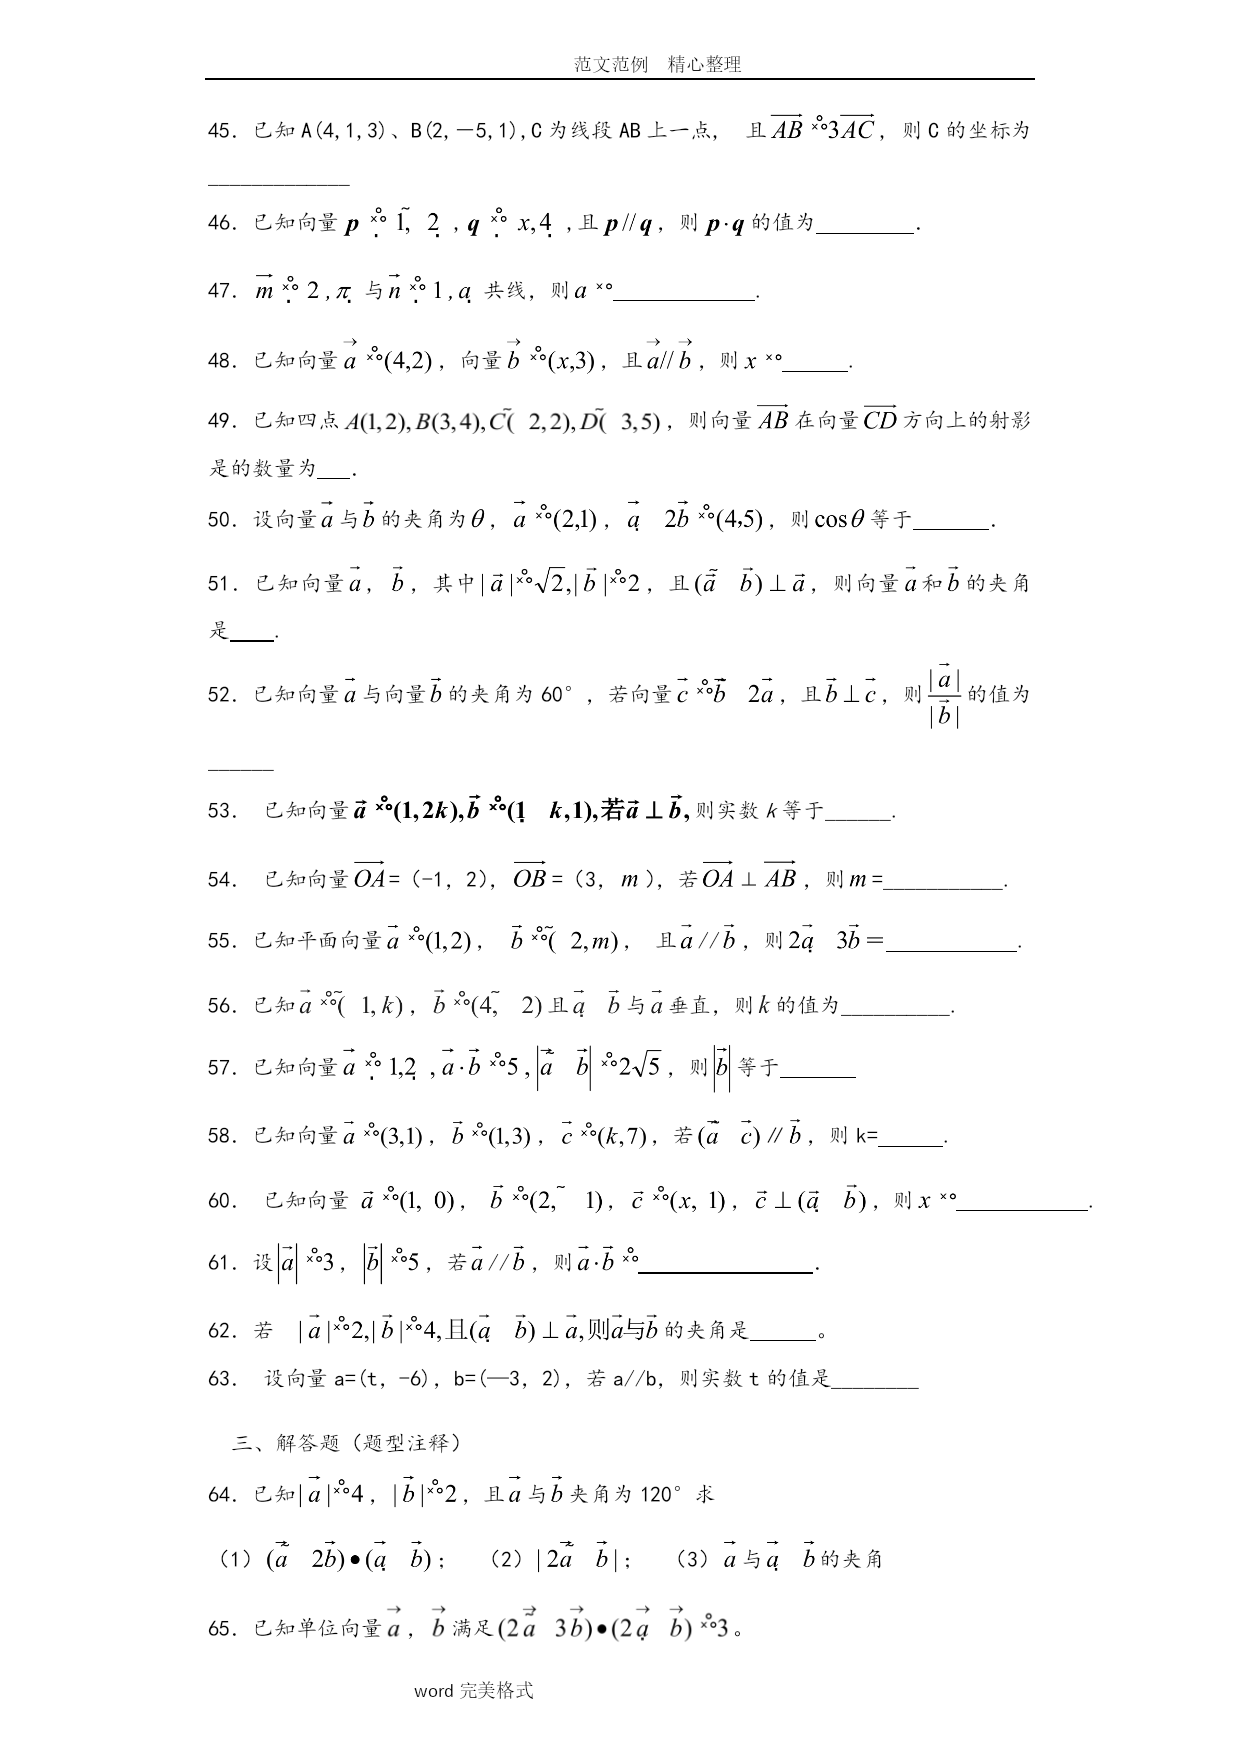 范文范例 精心整理
45．已知A(4,1,3)、B(2,－5,1),C为线段AB上一点， 且AB ×°3AC，则C的坐标为
_____________
46．已知向量 p ×° 1, ~ 2 , q ×° x,4 ,且 p // q，则 p·q 的值为_________．
47．m ×° 2 ,π 与 n ×° 1,a 共线，则a ×°_____________．
48．已知向量 a ×°(4,2)，向量 b ×°(x,3)，且a// b，则 x ×°______．
49．已知四点 A(1,2), B(3,4), C(~ 2,2), D(~ 3,5)，则向量 AB 在向量 CD 方向上的射影
是的数量为___．
50．设向量 a 与 b 的夹角为 θ， a ×°(2,1)， a 2b ×°(4,5)，则 cosθ 等于_______．
51．已知向量 a， b，其中| a |×°√2,| b |×°2，且(a ~ b) ⊥ a，则向量 a 和 b 的夹角
是____．
52．已知向量 a 与向量 b 的夹角为 60°，若向量 c ×°b 2a，且b ⊥ c，则 |a| / |b| 的值为
______
53． 已知向量 a ×°(1,2k), b ×°(1 k,1),若a ⊥ b, 则实数 k 等于______.
54． 已知向量 OA=（-1，2），OB =（3， m ），若OA ⊥ AB ，则 m =___________.
55．已知平面向量 a ×°(1,2)， b ×°(~ 2,m)， 且 a // b，则 2a 3b＝____________．
56．已知 a ×°(~ 1, k)，b ×°(4, ~ 2) 且 a b 与 a 垂直，则 k 的值为__________．
57．已知向量 a ×° 1,2 , a·b ×°5 , |a ~ b| ×°2√5，则 |b| 等于_______
58．已知向量 a ×°(3,1)， b ×°(1,3)， c ×°(k,7)，若 (a ~ c)∥ b，则 k=______．
60． 已知向量 a ×°(1, 0)， b ×°(2, ~ 1)，c ×°(x, 1)，c ⊥ (a b)，则 x ×°____________．
61．设|a| ×°3，|b| ×°5，若 a // b，则 a·b ×°________________．
62．若 | a |×°2,| b |×°4,且(a b) ⊥ a,则a与b 的夹角是______。
63． 设向量 a=(t，-6)，b=(—3，2)，若 a//b，则实数 t 的值是________
三、解答题（题型注释）
64．已知| a |×°4，| b |×°2，且 a 与 b 夹角为 120°求
（1）(a ~ 2b)•(a b)； （2）| 2a ~ b |； （3）a 与 a b 的夹角
65．已知单位向量 a ，b 满足(2a ~ 3b)•(2a b) ×°3。
word 完美格式